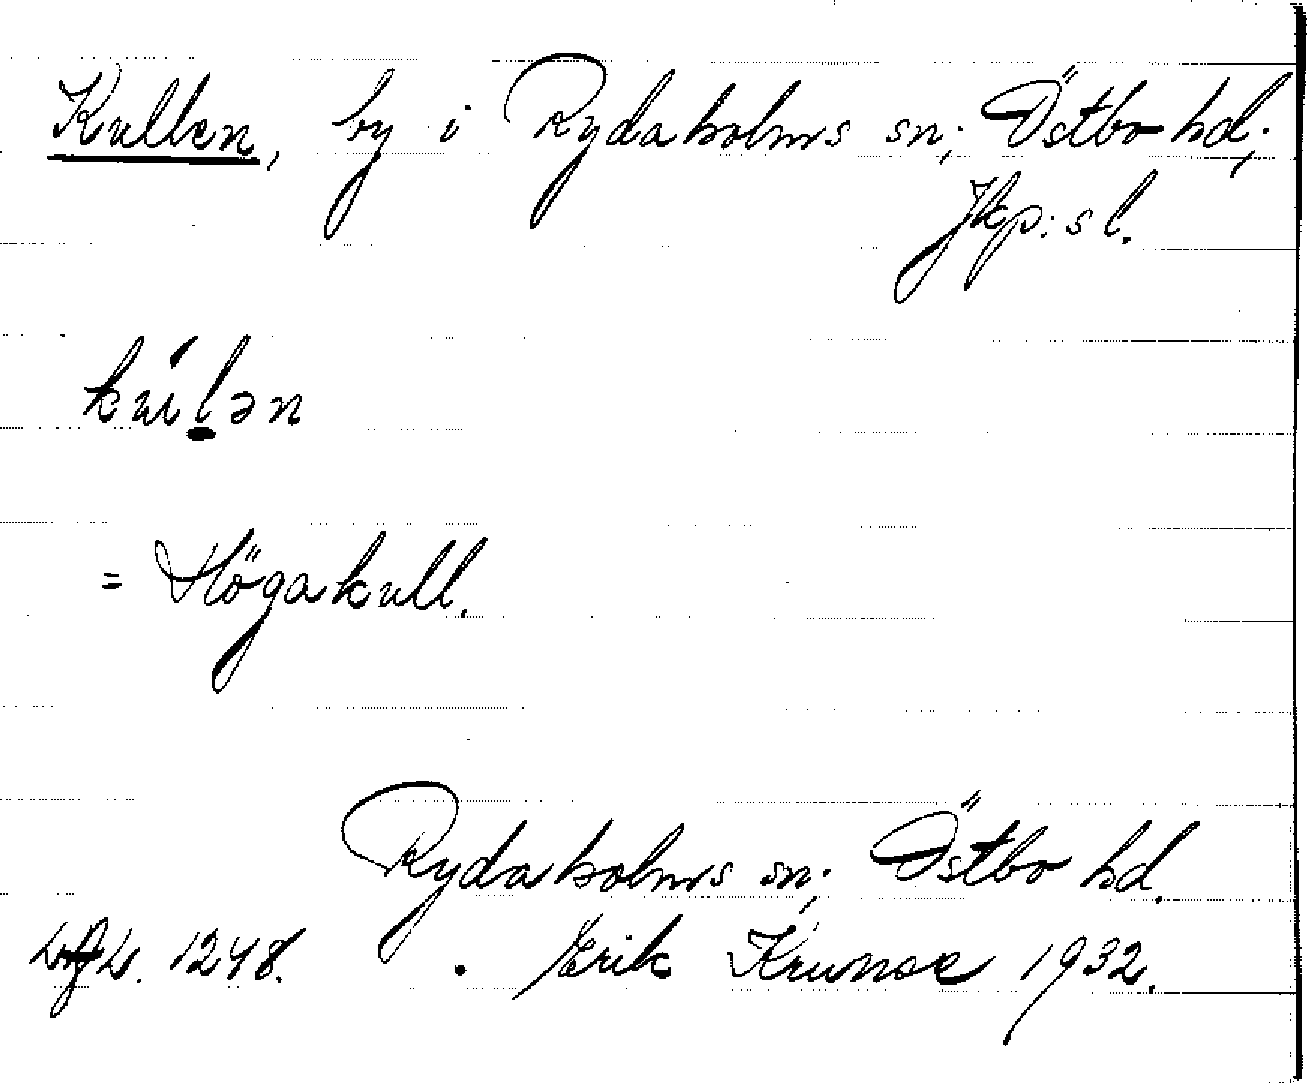 Kullen, by i Rydaholms sn; Östbo hd;
Jkp:s l.
kúl̠ən
= Höga kull.
Rydaholms sn; Östbo hd.
1248. Erik Krunse 1932.